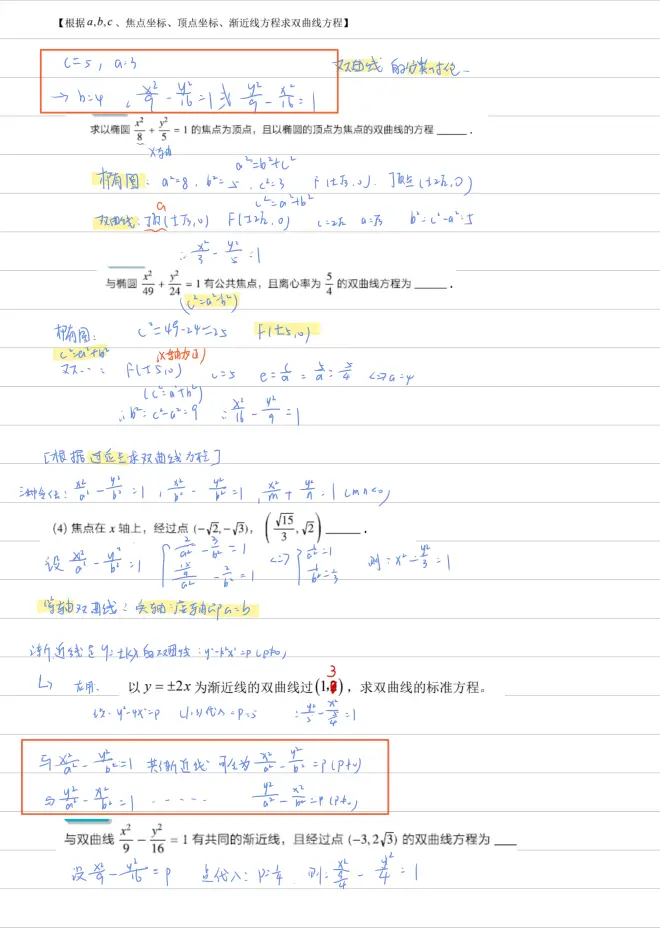 【根据 a,b,c、焦点坐标、顶点坐标、渐近线方程求双曲线方程】
c=5, a=3
双曲线的分类讨论
→ b=4, x²/9 - y²/16 = 1 或 y²/9 - x²/16 = 1
求以椭圆 x²/8 + y²/5 = 1 的焦点为顶点，且以椭圆的顶点为焦点的双曲线的方程 ______ .
x轴
a²=b²+c²
椭圆: a²=8, b²=5, c²=3 F(±√3,0). 顶点(±2√2,0)
c²=a²+b²
a
双曲线: 顶点(±√3,0) F(±2√2,0) c=2√2 a=√3 b²=c²-a²=5
∴ x²/3 - y²/5 = 1
与椭圆 x²/49 + y²/24 = 1 有公共焦点，且离心率为 5/4 的双曲线方程为 ______ .
(c²=a²-b²)
椭圆: c²=49-24=25 F(±5,0)
c²=a²+b² (x轴方向)
双…: F(±5,0) c=5 e=c/a=5/a=5/4 <=> a=4
(c²=a²+b²)
∴ b²=c²-a²=9 ∴ x²/16 - y²/9 = 1
[根据过定点求双曲线方程]
三种令法: x²/a² - y²/b² = 1, x²/b² - y²/b² = 1, x²/m + y²/n = 1 (mn<0)
(4) 焦点在 x 轴上，经过点 (-√2,-√3)， (√15/3, √2) ______ .
设 x²/a² - y²/b² = 1 { 2/a² - 3/b² = 1 <=> { 1/a² = 1 则: x² - y²/3 = 1
15/9/a² - 2/b² = 1 1/b² = 1/3
等轴双曲线: 实轴=虚轴即a=b
渐近线是 y=±kx 的双曲线: y²-k²x²=p (p≠0)
↳ 应用. 以 y = ±2x 为渐近线的双曲线过 (1,3)，求双曲线的标准方程。
设: y²-4x²=p (1,3)代入 =p=5 ∴ y²/5 - x²/5/4 = 1
与 x²/a² - y²/b² = 1 共渐近线: 可令为 x²/a² - y²/b² = p (p≠0)
与 y²/a² - x²/b² = 1 ······ y²/a² - x²/b² = p (p≠0)
与双曲线 x²/9 - y²/16 = 1 有共同的渐近线，且经过点 (-3, 2√3) 的双曲线方程为 ___
设 x²/9 - y²/16 = p 点代入: p=1/4 则: x²/9/4 - y²/4 = 1